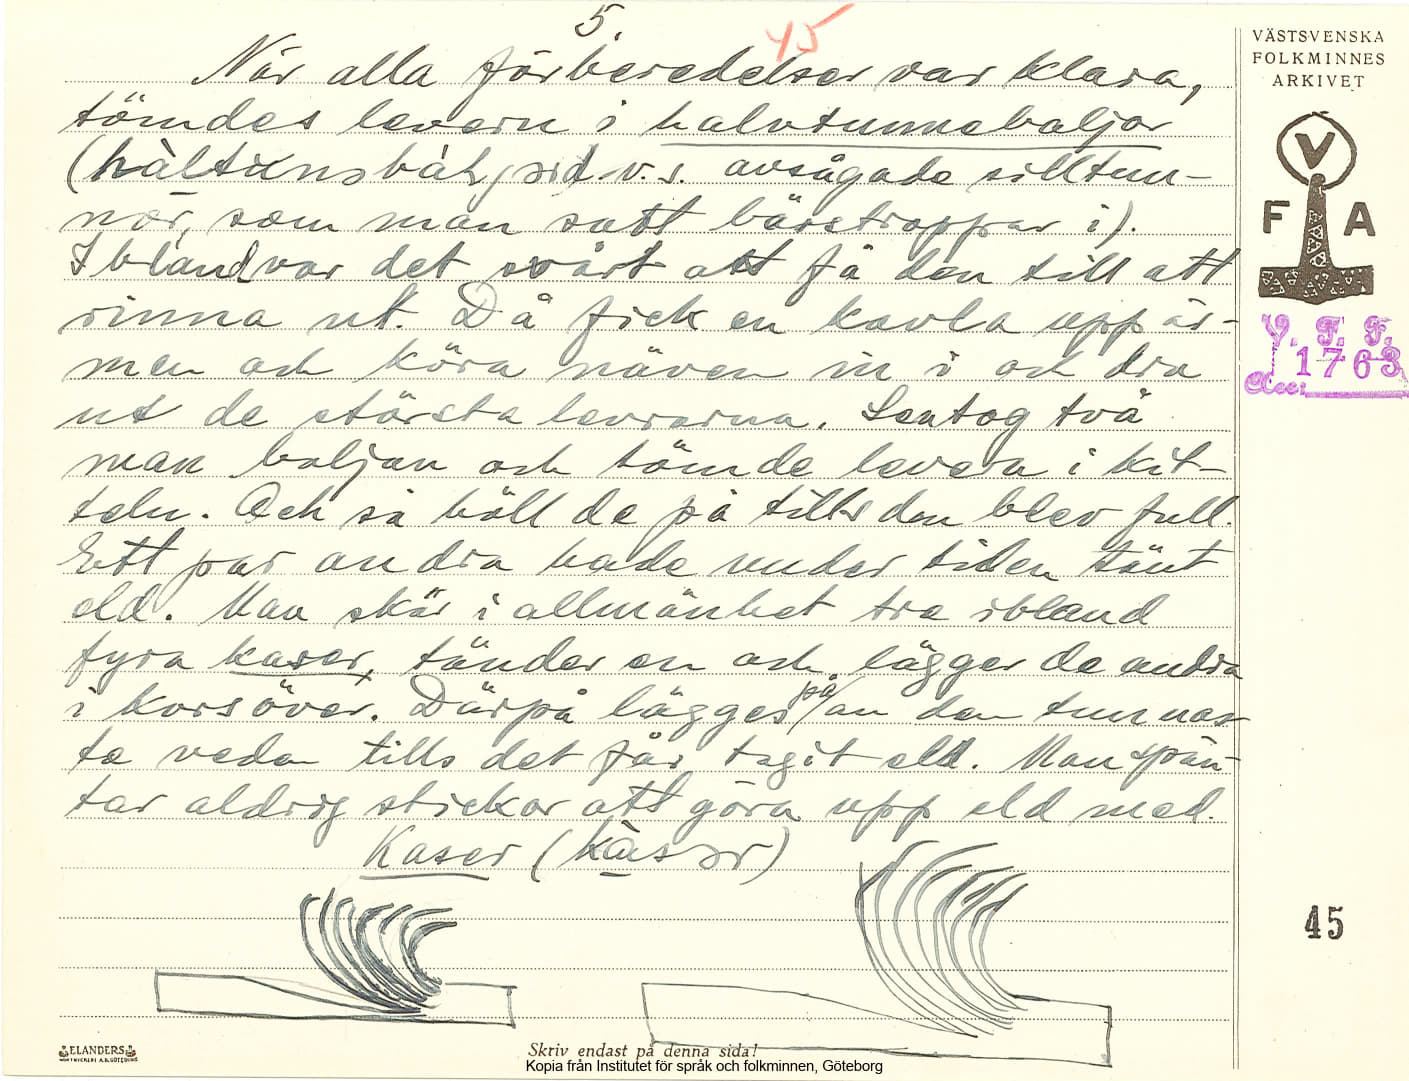 5.
45
När alla förberedelser var klara,
tömdes levern i halvtunnebaljor
d.v.s. avsågade silltun-
nor, som man satt bärstroppar i).
Ibland var det svårt att få den till att
rinna ut. Då fick en kavla upp är-
men och köra näven in i och dra
ut de största levrarna. Sen tog två
man baljan och tömde levern i kit-
teln. Och så höll de på tills den blev full.
Ett par andra hade under tiden tänt
eld. Man skär i allmänhet tre ibland
fyra kaser, tänder en och lägger de andra
i kors över. Därpå lägges på an den tunnas-
te veden tills det får tagit eld. Man spän-
tar aldrig stickor att göra upp eld med.
Kaser (kàsər)
VÄSTSVENSKA
FOLKMINNES
ARKIVET
V
F A
V. F. F.
1763
Acc:
45
ELANDERS
Skriv endast på denna sida!
Kopia från Institutet för språk och folkminnen, Göteborg